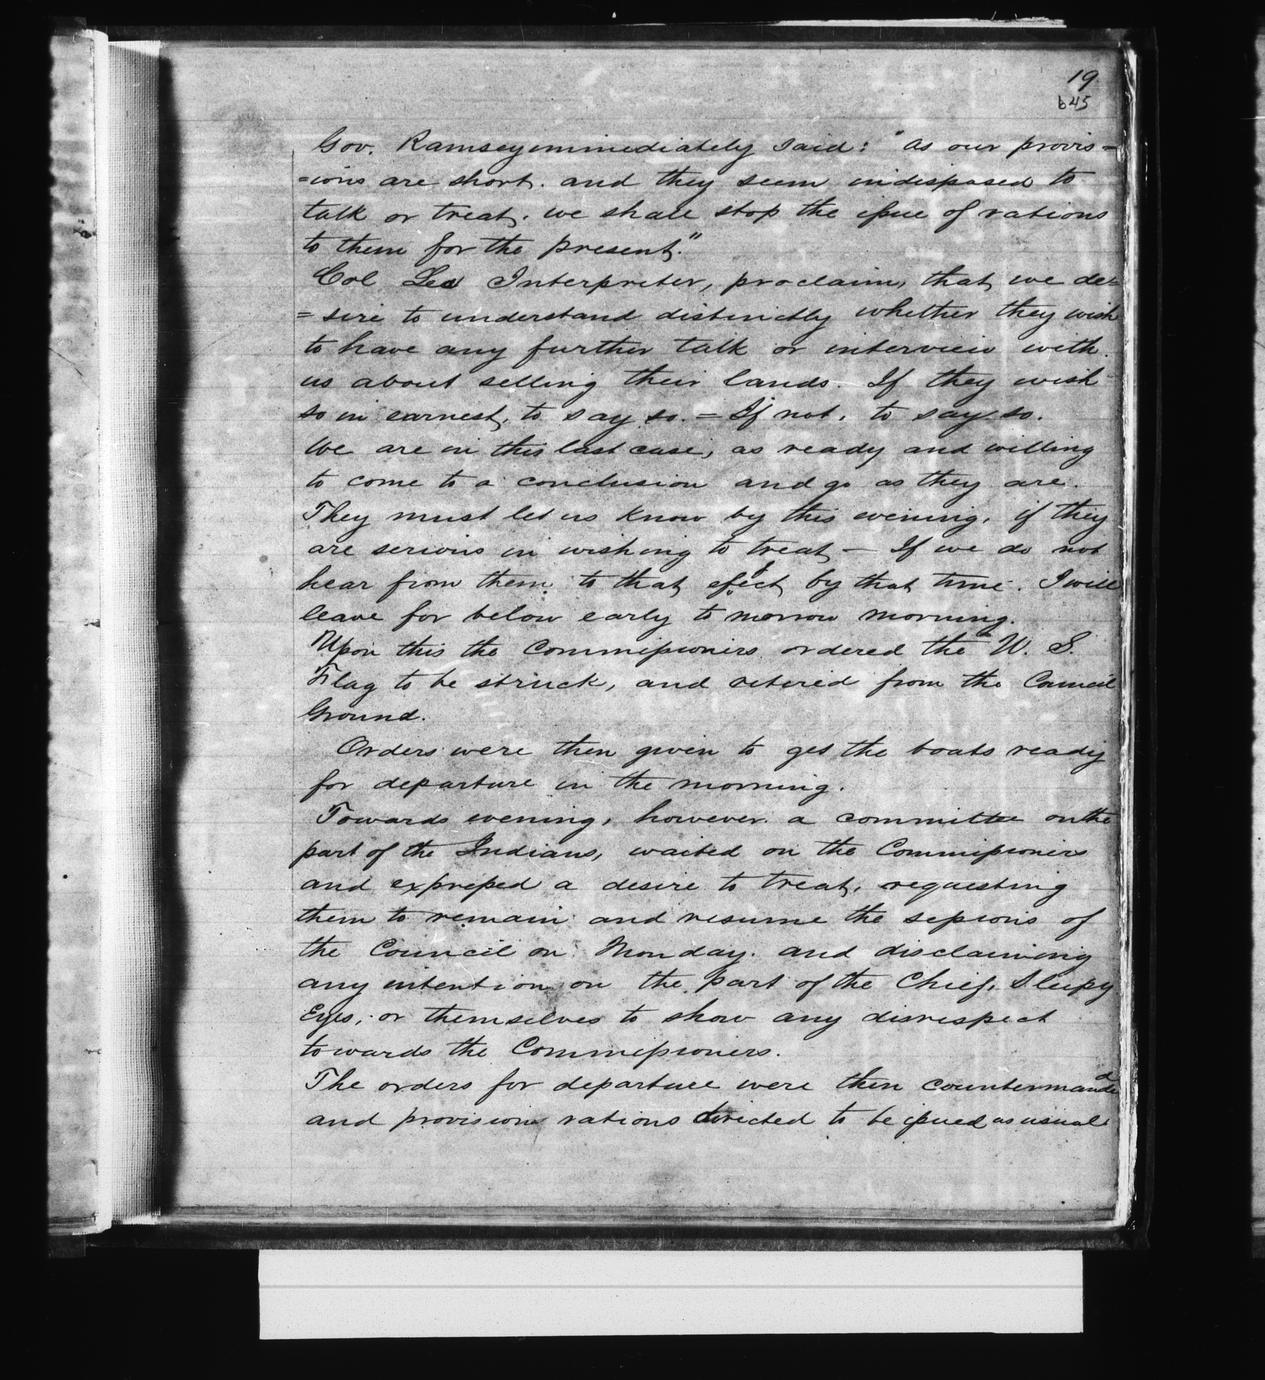 19
645
Gov. Ramsey immediately said: "As our provis=
=ions are short. and they seem indisposed to
talk or treat, we shall stop the issue of rations
to them for the present."
Col. Lea Interpreter, proclaim, that, we de=
=sire to understand distinctly whether they wish
to have any further talk or interview with
us about selling their lands. If they wish
so in earnest, to say so. = If not, to say so.
We are in this last case, as ready and willing
to come to a conclusion and go as they are.
They must let us know by this evening, if they
are serious in wishing to treat — If we do not
hear from them to that effect by that time. I will
leave for below early to morrow morning.
Upon this the Commissioners ordered the U. S.
Flag to be struck, and retired from the Council
Ground.
Orders were then given to get the boats ready
for departure in the morning.
Towards evening, however a committee on the
part of the Indians, waited on the Commissioners
and expressed a desire to treat, requesting
them to remain and resume the sessions of
the Council on Monday. and disclaiming
any intention on the part of the Chief, Sleepy
Eyes, or themselves to show any disrespect
towards the Commissioners.
The orders for departure were then countermanded
and provision rations directed to be issued as usual